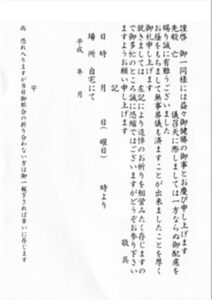 謹啓 御一同様には益々御健勝の御事とお慶び申し上げます
先般 亡 儀召天に際しましては一方ならぬ御配慮を
賜り誠に有難うございました
お蔭をもちまして無事葬儀も済ますことが出来ましたことを厚く
御礼申し上げます
就きましては 左記により追悼のお祈りを相営みたく存じますの
で御多忙のところ誠に恐縮ではございますがどうぞお参り下さい
ますようお願い申し上げます 敬具
記
日時 月 日(曜日) 時より
場所 自宅にて
平成 年 月
〒
尚 恐れ入りますが当日御都合の折り合わない方は御一報下されば幸いに存じます